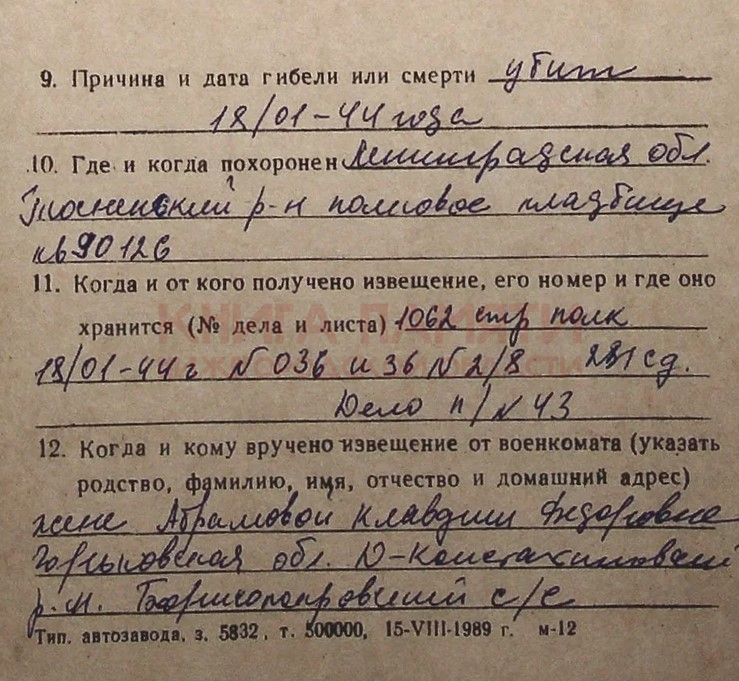 9. Причина и дата гибели или смерти убит
18/01-44 года
10. Где и когда похоронен Ленинградская обл.
Тосненский р-н полковое кладбище
кв 90126
11. Когда и от кого получено извещение, его номер и где оно
хранится (№ дела и листа) 1062 стр полк
18/01-44 г N 036 и 36 N 2/8 281 сд.
Дело п/N 43
12. Когда и кому вручено извещение от военкомата (указать
родство, фамилию, имя, отчество и домашний адрес)
жене Абрамовой Клавдии Федоровне
Горьковская обл. Д-Константиновский
р-н. Борисопокровский с/с
Тип. автозавода, з. 5832, т. 500000, 15-VIII-1989 г. м-12
КНИГА ПАМЯТИ